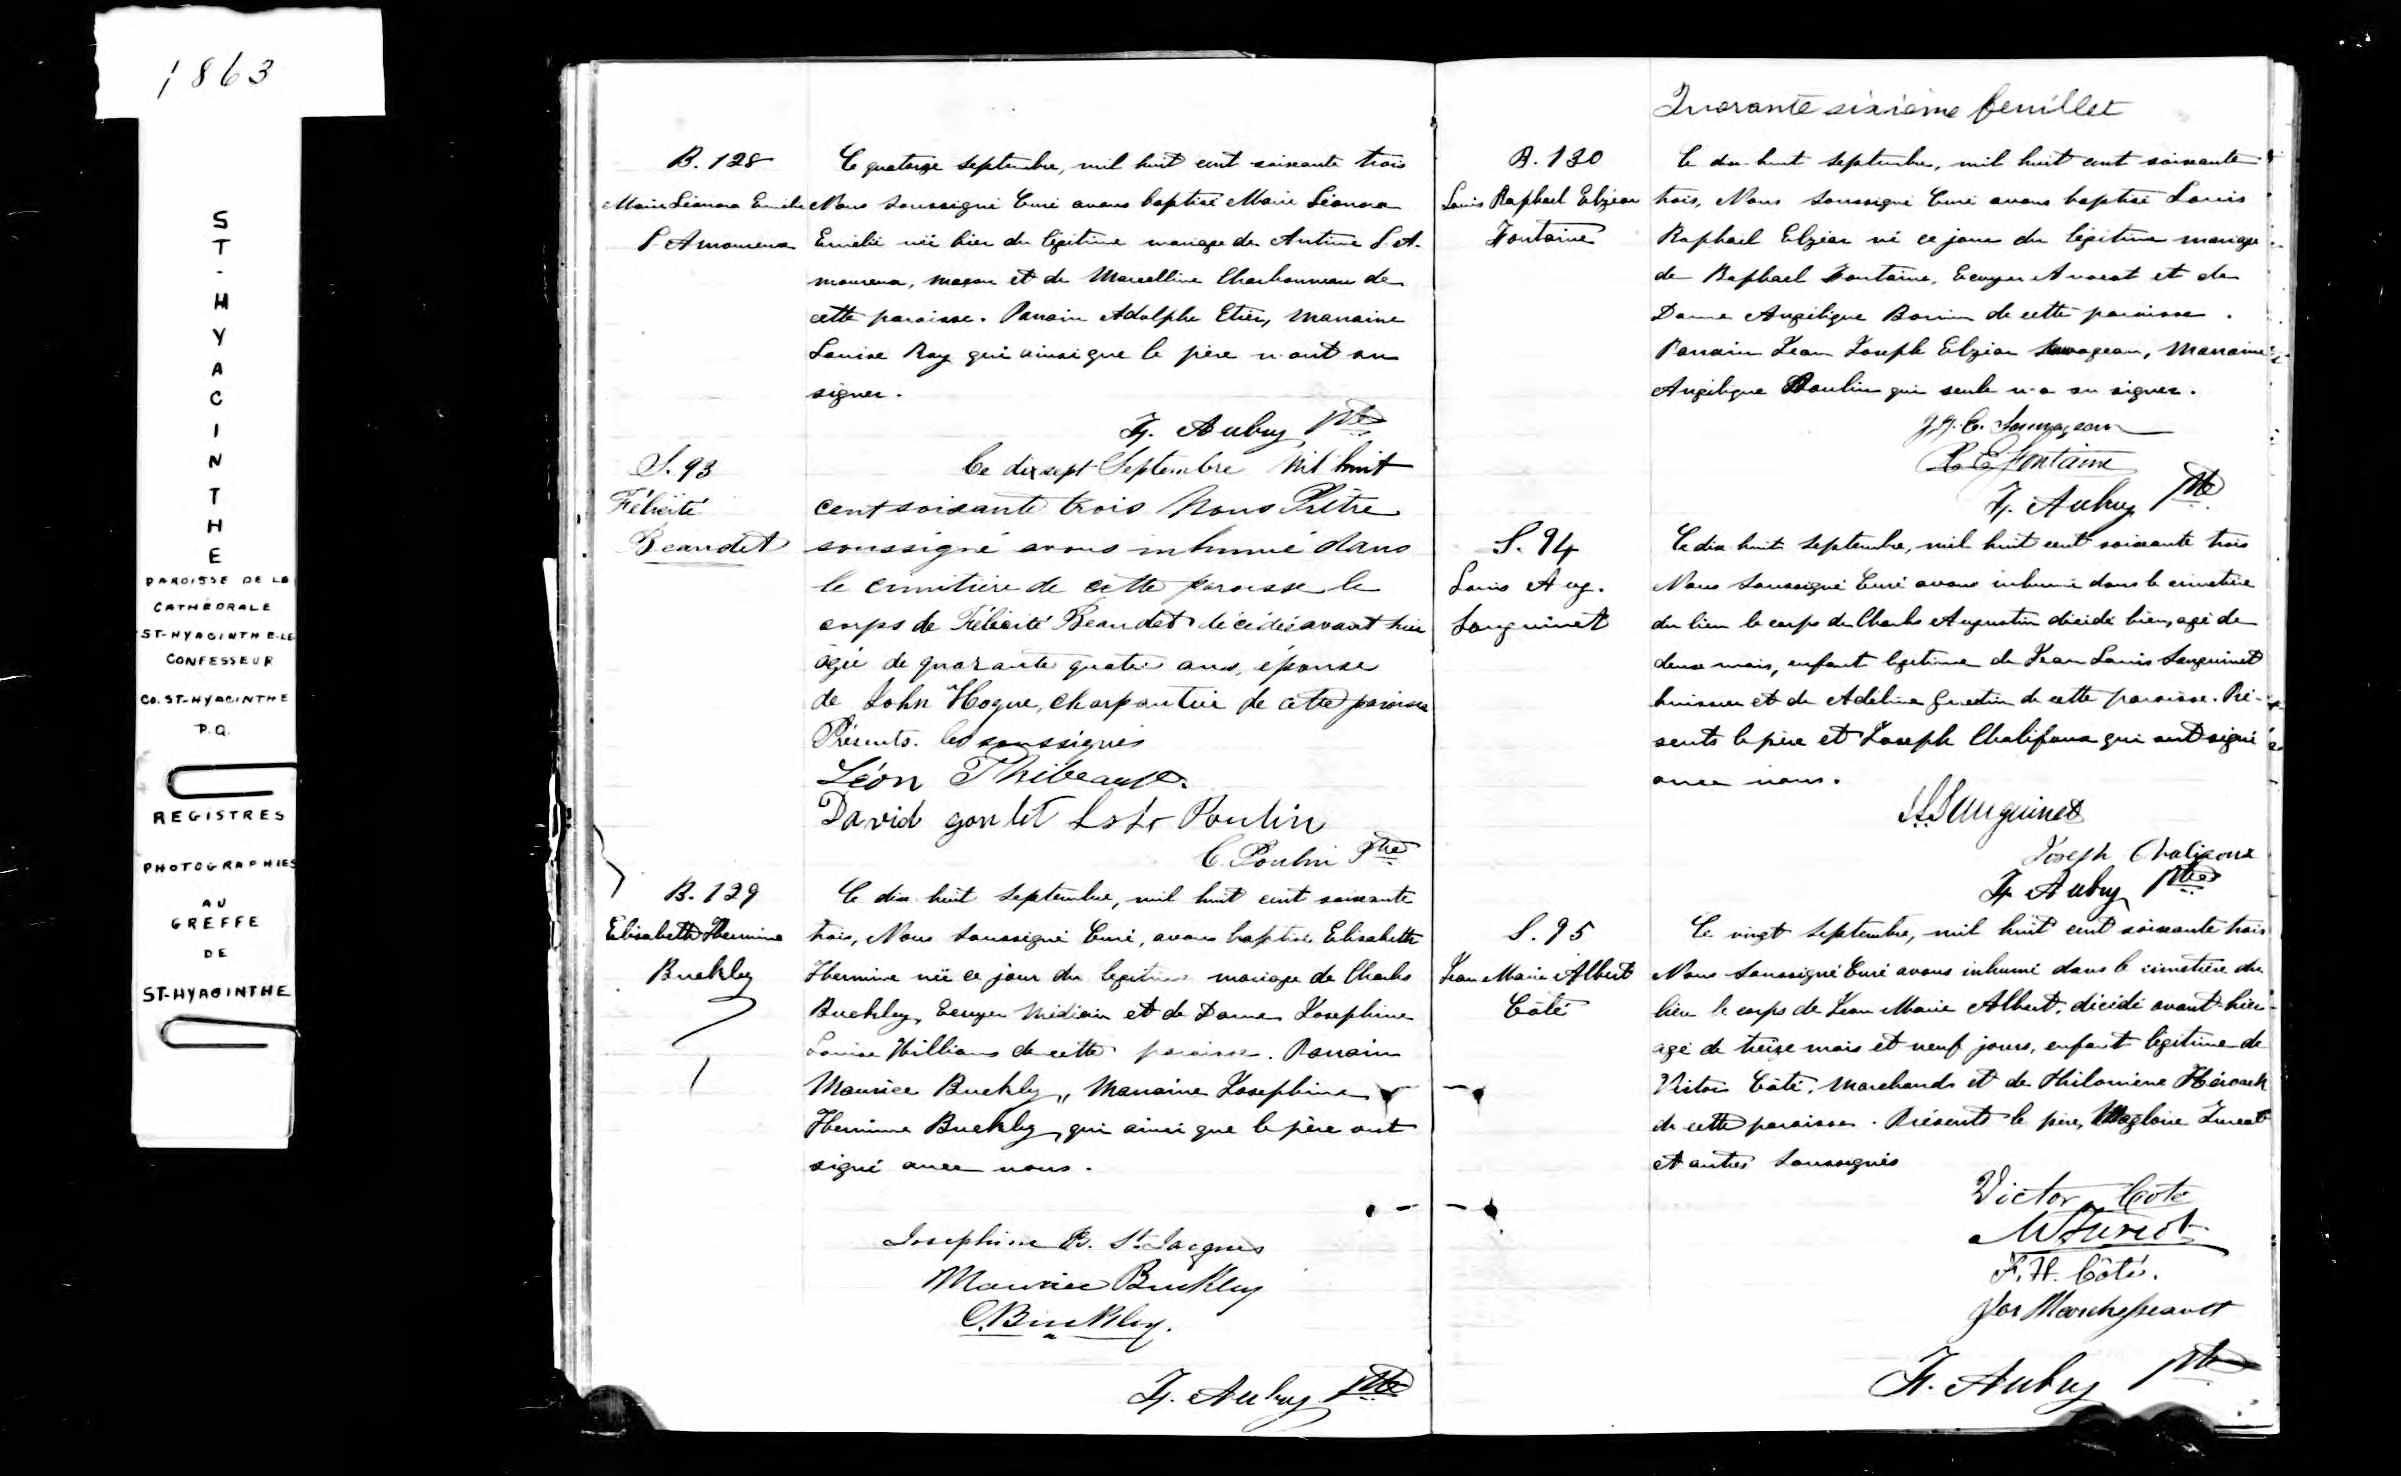 1863
ST-HYACINTHE
PAROISSE DE LA
CATHÉDRALE
ST-HYACINTHE-LE
CONFESSEUR
CO. ST-HYACINTHE
P.Q.
REGISTRES
PHOTOGRAPHIES
AU
GREFFE
DE
ST-HYACINTHE
B. 128
Marie Léonora Emélie
L'Amoureux
Ce quatorze Septembre, mil huit cent soixante trois
Nous soussigné Curé avons baptisé Marie Léonora
Emélie née hier du légitime mariage de Antime L'A-
moureux, maçon et de Marcelline Charbonneau de
cette paroisse. Parrain Adolphe Etier, Marraine
Louise Roy qui ainsi que le père n'ont su
signer.
F. Aubry Ptre
S. 93
Félicité
Beaudet
Ce dix sept Septembre Mil huit
cent soixante trois Nous Prêtre
soussigné avons inhumé dans
le cimetière de cette paroisse le
corps de Félicité Beaudet décédée avant hier
âgée de quarante quatre ans, épouse
de John Hogue, charpentier de cette paroisse
Présents. les soussignés
Léon Thibeault.
David goulet Ls Poulin
C. Poulin Ptre
B. 129
Elisabeth Hermine
Buckley
Ce dix huit Septembre, mil huit cent soixante
trois, Nous Soussigné Curé, avons baptisé Elisabeth
Hermine née ce jour du légitime mariage de Charles
Buckley, Ecuyer Médecin et de Dame Josephine
Louise Williams de cette paroisse. Parrain
Maurice Buckley, Marraine Josephine
Hermine Buckley, qui ainsi que le père ont
signé avec nous.
Josephine B. St Jacques
Maurice Buckley
C. Buckley.
F. Aubry Ptre
Quarante sixième feuillet
B. 130
Louis Raphael Elzéar
Fontaine
Ce dix huit Septembre, mil huit cent soixante
trois, Nous soussigné Curé avons baptisé Louis
Raphael Elzéar né ce jour du légitime mariage
de Raphael Fontaine, Ecuyer Avocat et de
Dame Angélique Boivin de cette paroisse.
Parrain Jean Joseph Elzéar Sauvageau, Marraine
Angélique Poulin qui seule n'a su signer.
J. J. E. Sauvageau
R. E. Fontaine
F. Aubry Ptre
S. 94
Louis Aug.
Sanguinet
Ce dix huit Septembre, mil huit cent soixante trois
Nous Soussigné Curé avons inhumé dans le cimetière
du lieu le corps de Charles Augustin décédé hier, agé de
deux mois, enfant légitime de Jean Louis Sanguinet
huissier et de Adeline Guertin de cette paroisse. Pré-
sents le père et Joseph Chalifoux qui ont signé
avec nous.
J. L. Sanguinet
Joseph Chalifoux
F. Aubry Ptre
S. 95
Jean Marie Albert
Côté
Ce vingt Septembre, mil huit cent soixante trois
Nous Soussigné Curé avons inhumé dans le cimetière du
lieu le corps de Jean Marie Albert, décédé avant-hier
agé de treize mois et neuf jours, enfant légitime de
Victor Côté, Marchand et de Philomène Hérouck
de cette paroisse. Présents le père, Magloire Turcot
et autres Soussignés
Victor Côté
M Turcot
F. H. Côté.
Jos Marchesseault
F. Aubry Ptre